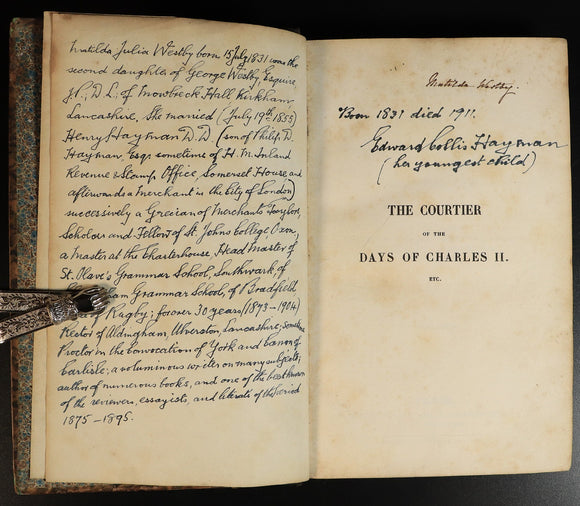 Matilda Julia Westby born 15 July 1831 was the
second daughter of George Westby, Esquire,
J.P., D.L., of Mowbreck Hall Kirkham,
Lancashire. She married (July 19th 1855)
Henry Hayman D.D. (son of Philip D.
Hayman, Esqr. sometime of H.M. Inland
Revenue & Stamp Office Somerset House and
afterwards a Merchant in the City of London)
successively a Grecian of Merchant Taylors,
Scholar and Fellow of St. Johns College Oxon,
a Master at the Charterhouse, Head Master of
St. Olave's Grammar School, Southwark, of
am Grammar School, of Bradfield
of Rugby; for over 30 years (1873-1904)
Rector of Aldingham, Ulverston, Lancashire; sometime
Proctor in the Convocation of York and Canon of
Carlisle; a voluminous writer on many subjects;
author of numerous books, and one of the best known
of the reviewers, essayists, and literati of the period
1875-1895.
Matilda Westby.
Born 1831 died 1911.
Edward Collis Hayman
(her youngest child)
THE COURTIER
OF THE
DAYS OF CHARLES II.
ETC.